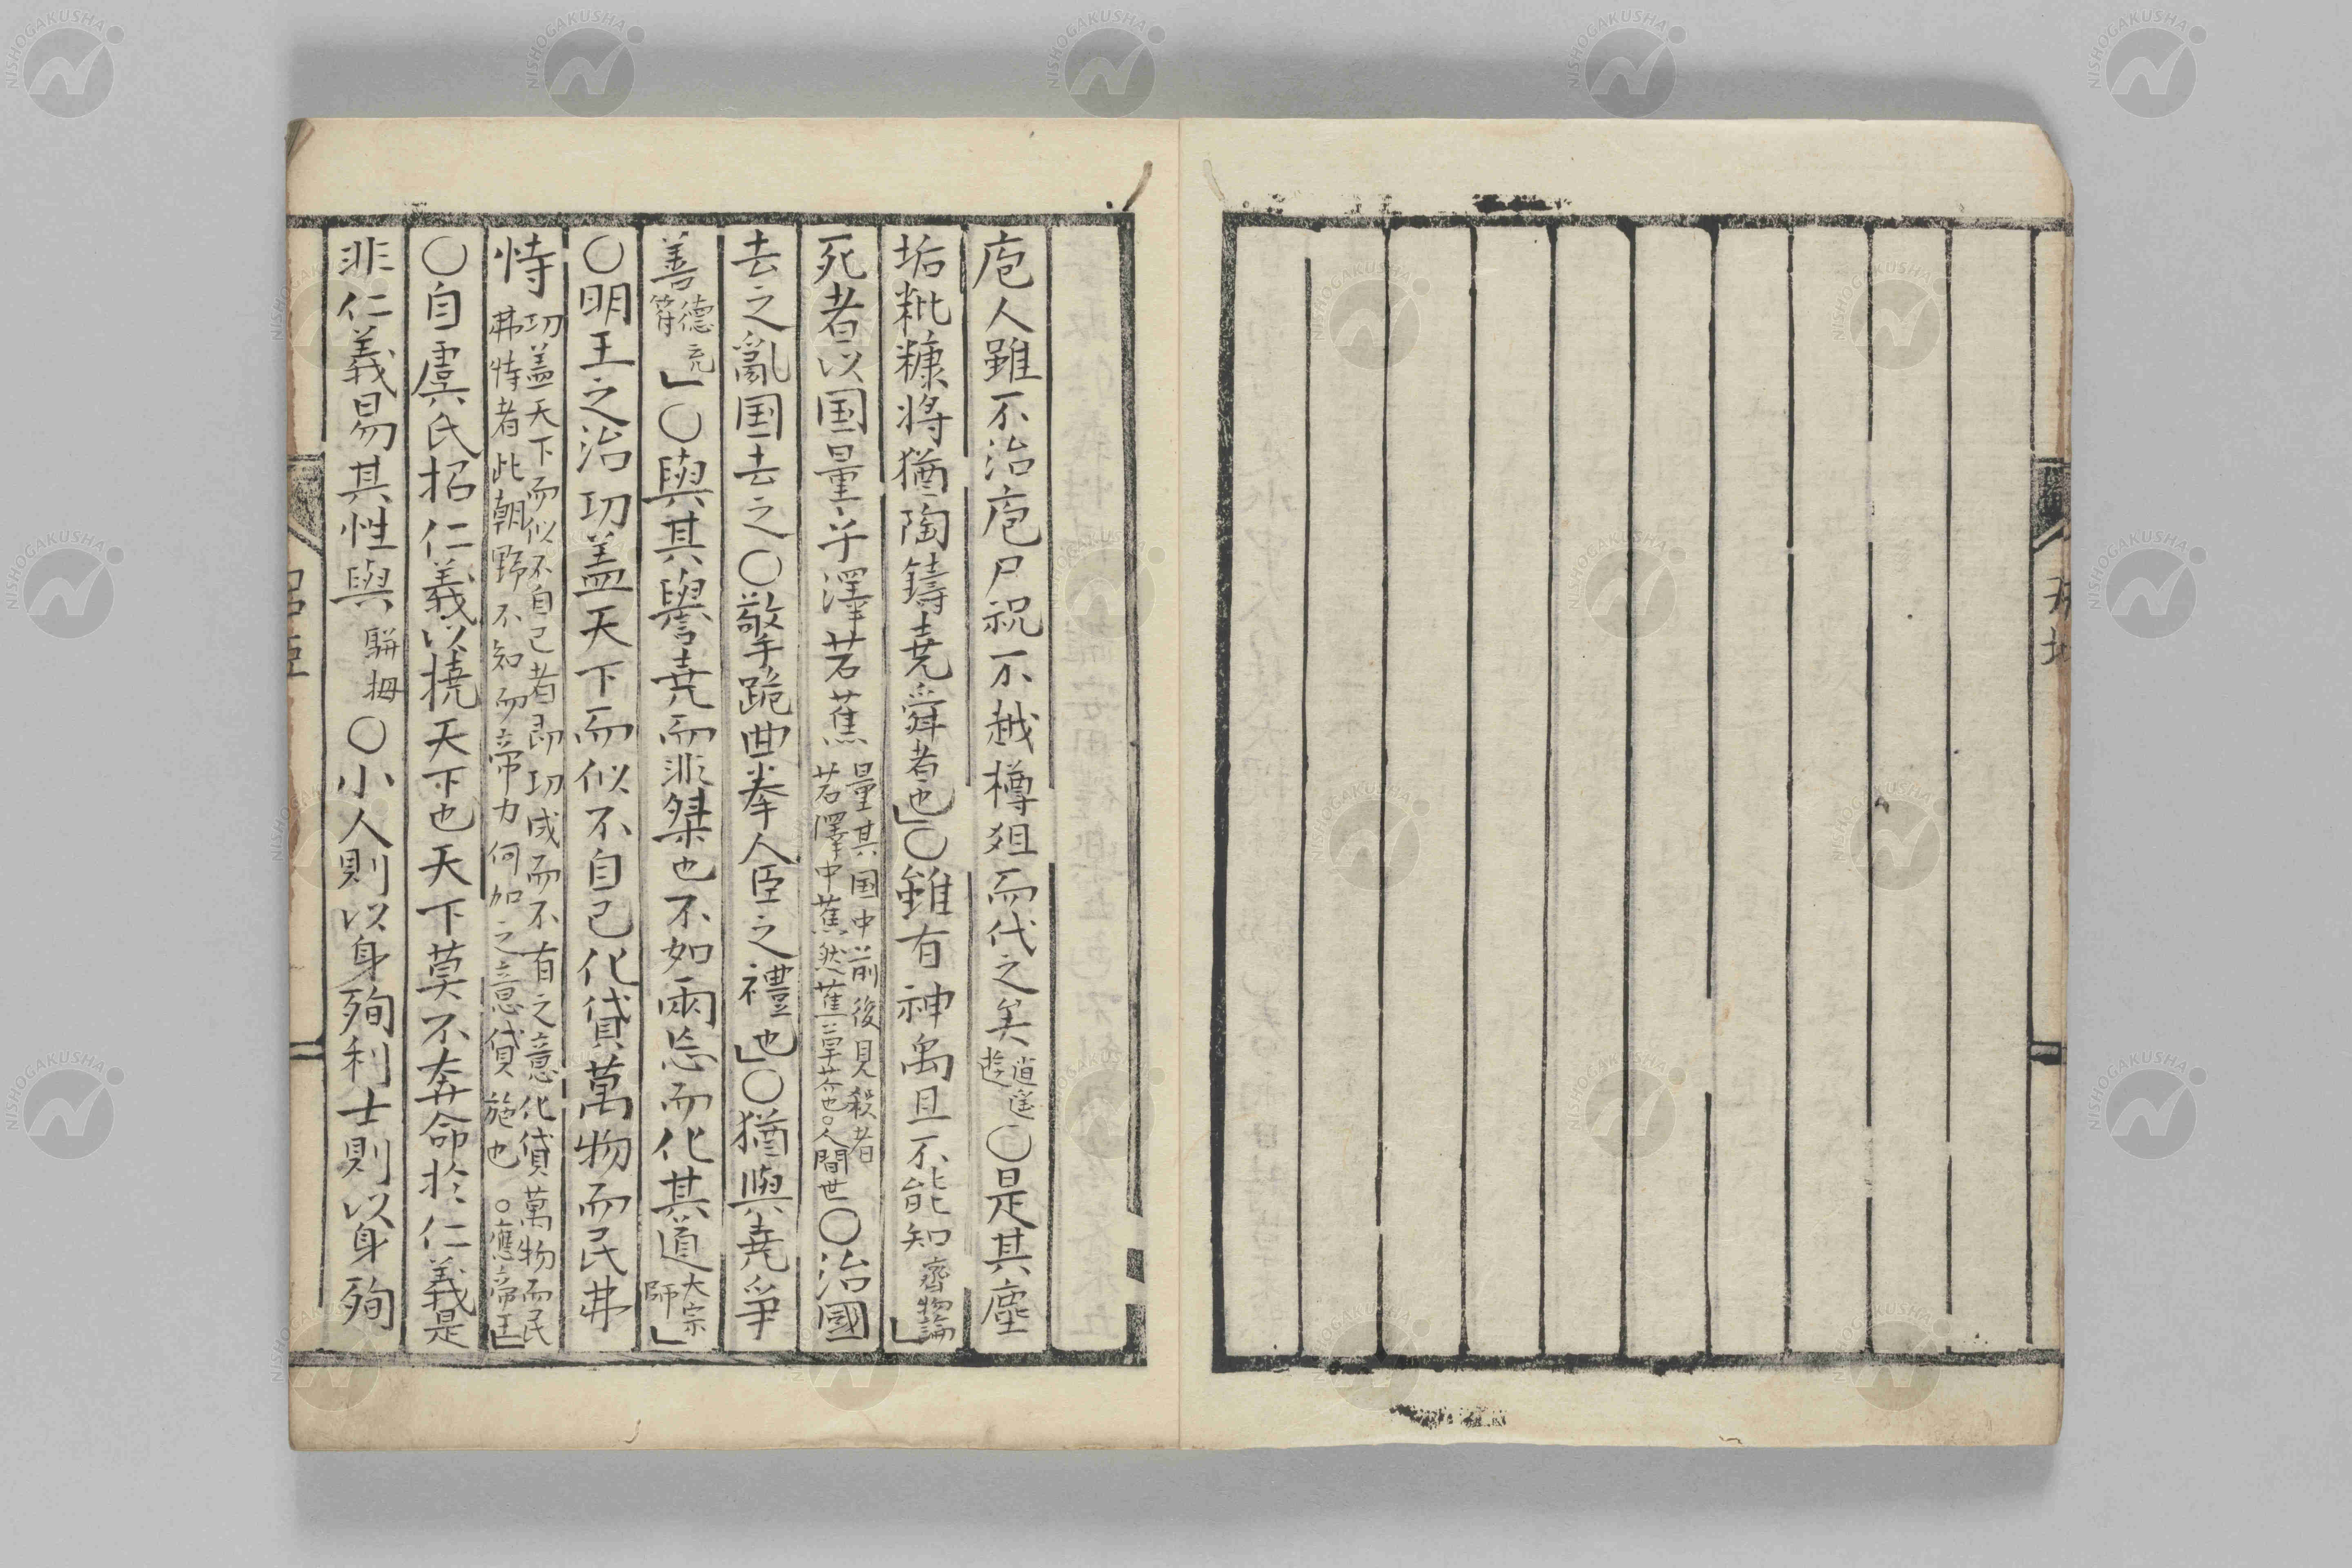 庖人雖不治庖尸祝不越樽俎而代之矣逍遥遊○是其塵
垢粃糠将猶陶鑄堯舜者也」○雖有神禹且不能知齊物論」
死者以国量乎澤若蕉量其国中前後見殺者若澤中蕉然蕉草芥也○人間世○治國
去之亂国去之○擎跪曲拳人臣之禮也」○猶與堯爭
善德充符」○與其譽堯而非桀也不如兩忘而化其道大宗師」
○明王之治功盖天下而似不自己化貸萬物而民弗
恃功盖天下而似不自己者即功成而不有之意化貸萬物而民弗恃者此朝野不知而帝力何加之意貸施也○應帝王」
○自虞氏招仁義以撓天下也天下莫不奔命於仁義是
非仁義易其性與駢拇○小人則以身殉利士則以身殉